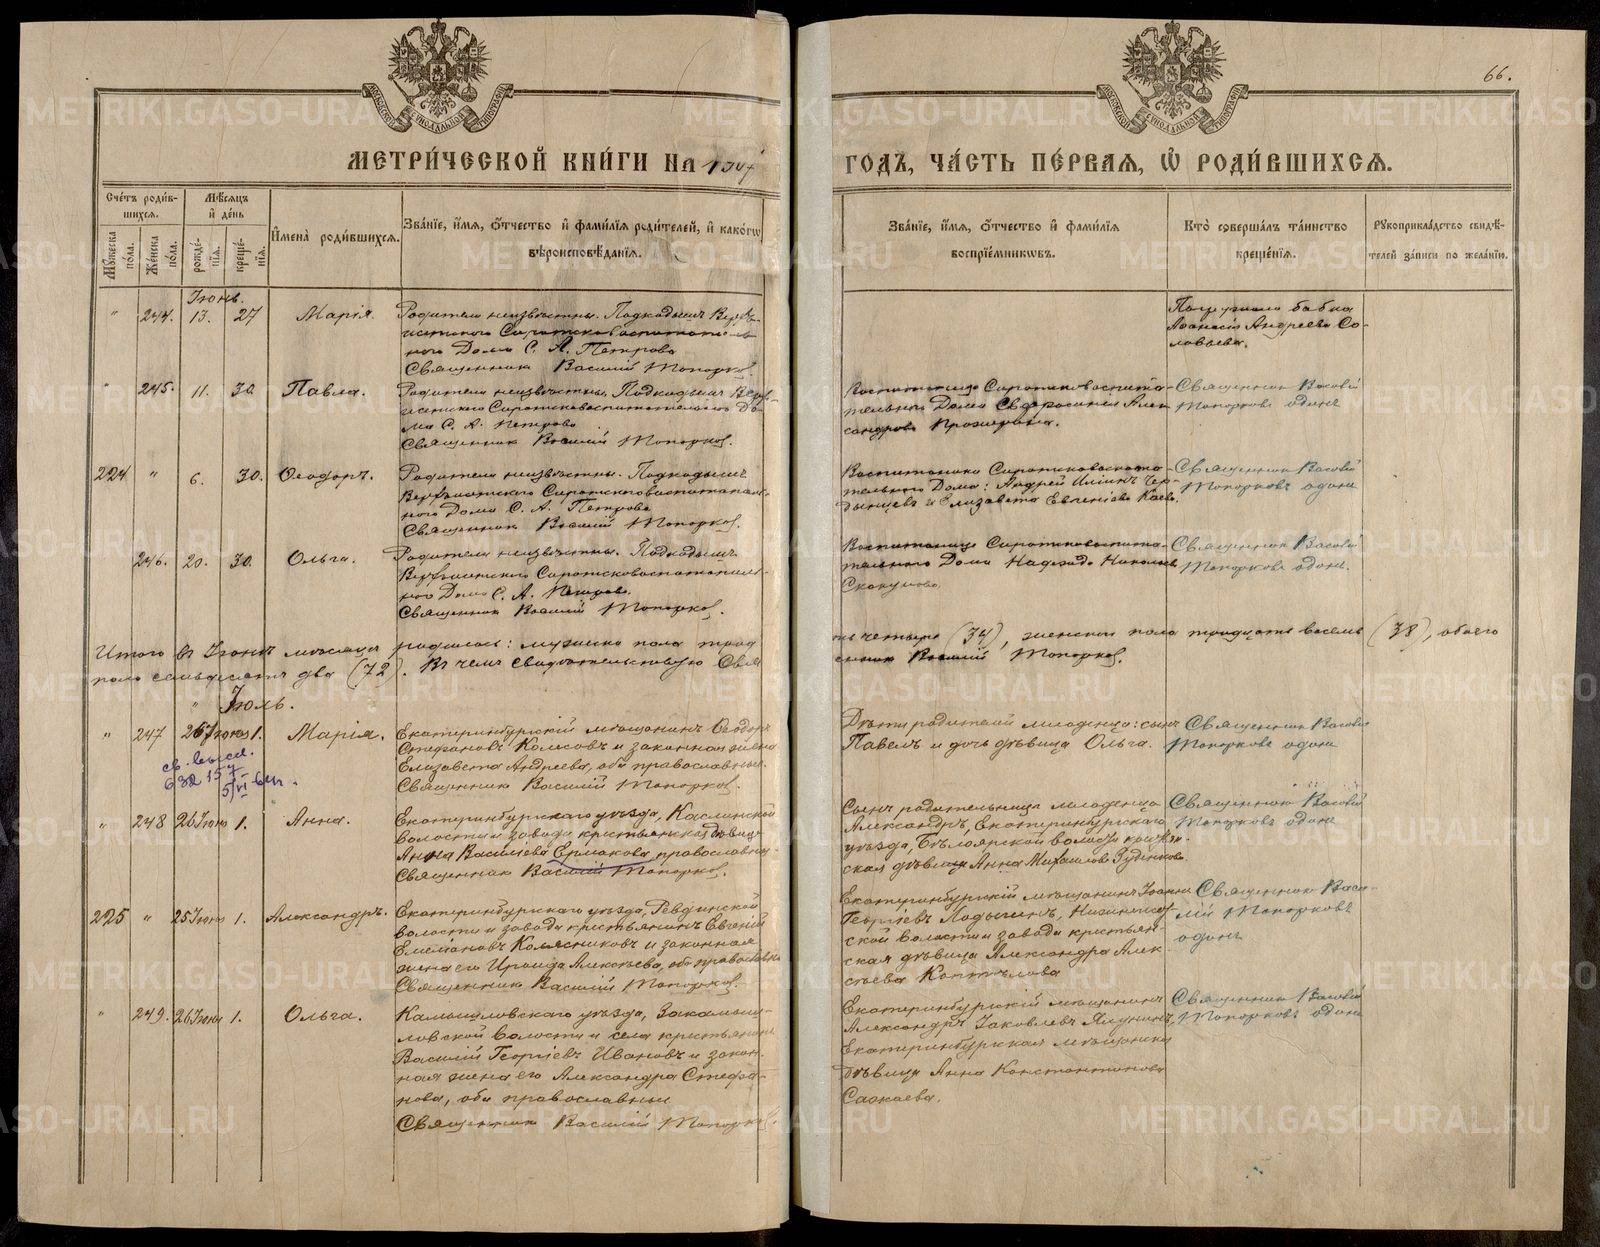 66.
МЕТРИ́ЧЕСКОЙ КНИ́ГИ НА
ГОДЪ, ЧА́СТЬ ПЕ́РВАЯ, Ѽ РОДИ́ВШИХСѦ.
Сче́тъ роди́в-
шихсѧ.
Мѣ́сѧцъ
и҆ де́нь
Мꙋжеска по́ла.
Же́нска по́ла.
рожде́-
нїѧ.
креще́-
нїѧ.
И҆мена̀ роди́вшихсѧ.
Зва́нїе, и҆́мѧ, ѻ҆́тчество и҆ фами́лїѧ роди́телей, и҆ како́гѡ
вѣроисповѣ́данїѧ.
Зва́нїе, и҆́мѧ, ѻ҆́тчество и҆ фами́лїѧ
воспрїе́мникѡвъ.
Кто̀ соверша́лъ та́инство
креще́нїѧ.
Рꙋкоприкла́дство свидѣ́-
телей за́писи по жела́нїю.
Іюнь.
" 244. 13. 27 Марія.
Родители неизвѣстны. Подкидышъ Верхъ-
исетскаго Сиротсковоспитатель-
наго Дома С. А. Петрова
Священникъ Василій Топорковъ.
Погружала бабка
Афанасія Андреева Со-
ловьева.
" 245. 11. 30. Павла.
Родители неизвѣстны, Подкидышъ Верх-
исетскаго Сиротсковоспитательнаго До-
ма С. А. Петрова
Священникъ Василій Топорковъ.
Воспитанница Сиротсковоспита-
тельнаго Дома Евфросинія Алек-
сандрова
Священникъ Василій
Топорковъ одинъ
224 " 6. 30. Ѳеодоръ.
Родители неизвѣстны. Подкидышъ
Верхъисетскаго Сиротсковоспитатель-
наго Дома С. А. Петрова
Священникъ Василій Топорковъ.
Воспитанники Сиротсковоспита-
тельнаго Дома: Андрей Ильинъ Чер-
дынцевъ и Елизавета Евгеніева Каева.
Священникъ Василій
Топорковъ одинъ
246. 20. 30. Ольга.
Родители неизвѣстны. Подкидышъ
Верхъисетскаго Сиротсковоспитатель-
наго Дома С. А. Петрова.
Священникъ Василій Топорковъ.
Воспитанница Сиротсковоспита-
тельнаго Дома Надежда Николаева
Скакунова.
Священникъ Василій
Топорковъ одинъ.
Итого въ Іюнѣ мѣсяцѣ родилось: мужеска пола трид
цать четыре (34), женска пола тридцать восемь (38), обоего
пола семьдесятъ два (72). Въ чемъ свидѣтельствую Свя
щенникъ Василій Топорковъ.
" Іюль.
" 247 26 Іюня 1. Марія.
св. выд.
Екатеринбургскій мѣщанинъ Ѳеодоръ
Стефановъ Колесовъ и законная жена
Елизавета Андреева, оба православные.
Священникъ Василій Топорковъ.
Дѣти родителей младенца: сынъ
Павелъ и дочь дѣвица Ольга.
Священникъ Василій
Топорковъ одинъ
" 248 26 Іюня 1. Анна.
Екатеринбургскаго уѣзда, Каслинской
волости и завода крестьянская дѣвица
Анна Васильева Ермакова, православная
Священникъ Василій Топорковъ.
Сынъ родительницы младенца
Александръ, Екатеринбургскаго
уѣзда, Бѣлоярской волости крестьян-
ская дѣвица Анна Михайлова Руденкова.
Священникъ Василій
Топорковъ одинъ
225 " 25 Іюня 1. Александръ.
Екатеринбургскаго уѣзда, Ревдинской
волости и завода крестьянинъ Евгеній
Емеліановъ Колясниковъ и законная
жена его Ираида Алексѣева, оба православные
Священникъ Василій Топорковъ.
Екатеринбургскій мѣщанинъ Іоаннъ
Георгіевъ Ладыгинъ,
ской волости и завода крестьян-
ская дѣвица Александра Алек-
сѣева Коптѣлова
Священникъ Васи-
лій Топорковъ
одинъ
" 249. 26 Іюня 1. Ольга.
Камышловскаго уѣзда, Закамыш-
ловской волости и села крестьянинъ
Василій Георгіевъ Ивановъ и закон-
ная жена его Александра Стефа-
нова, оба православные
Священникъ Василій Топорковъ.
Екатеринбургскій мѣщанинъ
Александръ Іаковлевъ Ялунинъ,
Екатеринбургская мѣщанская
дѣвица Анна Константинова
Священникъ Василій
Топорковъ одинъ
METRIKI.GASO-URAL.RU